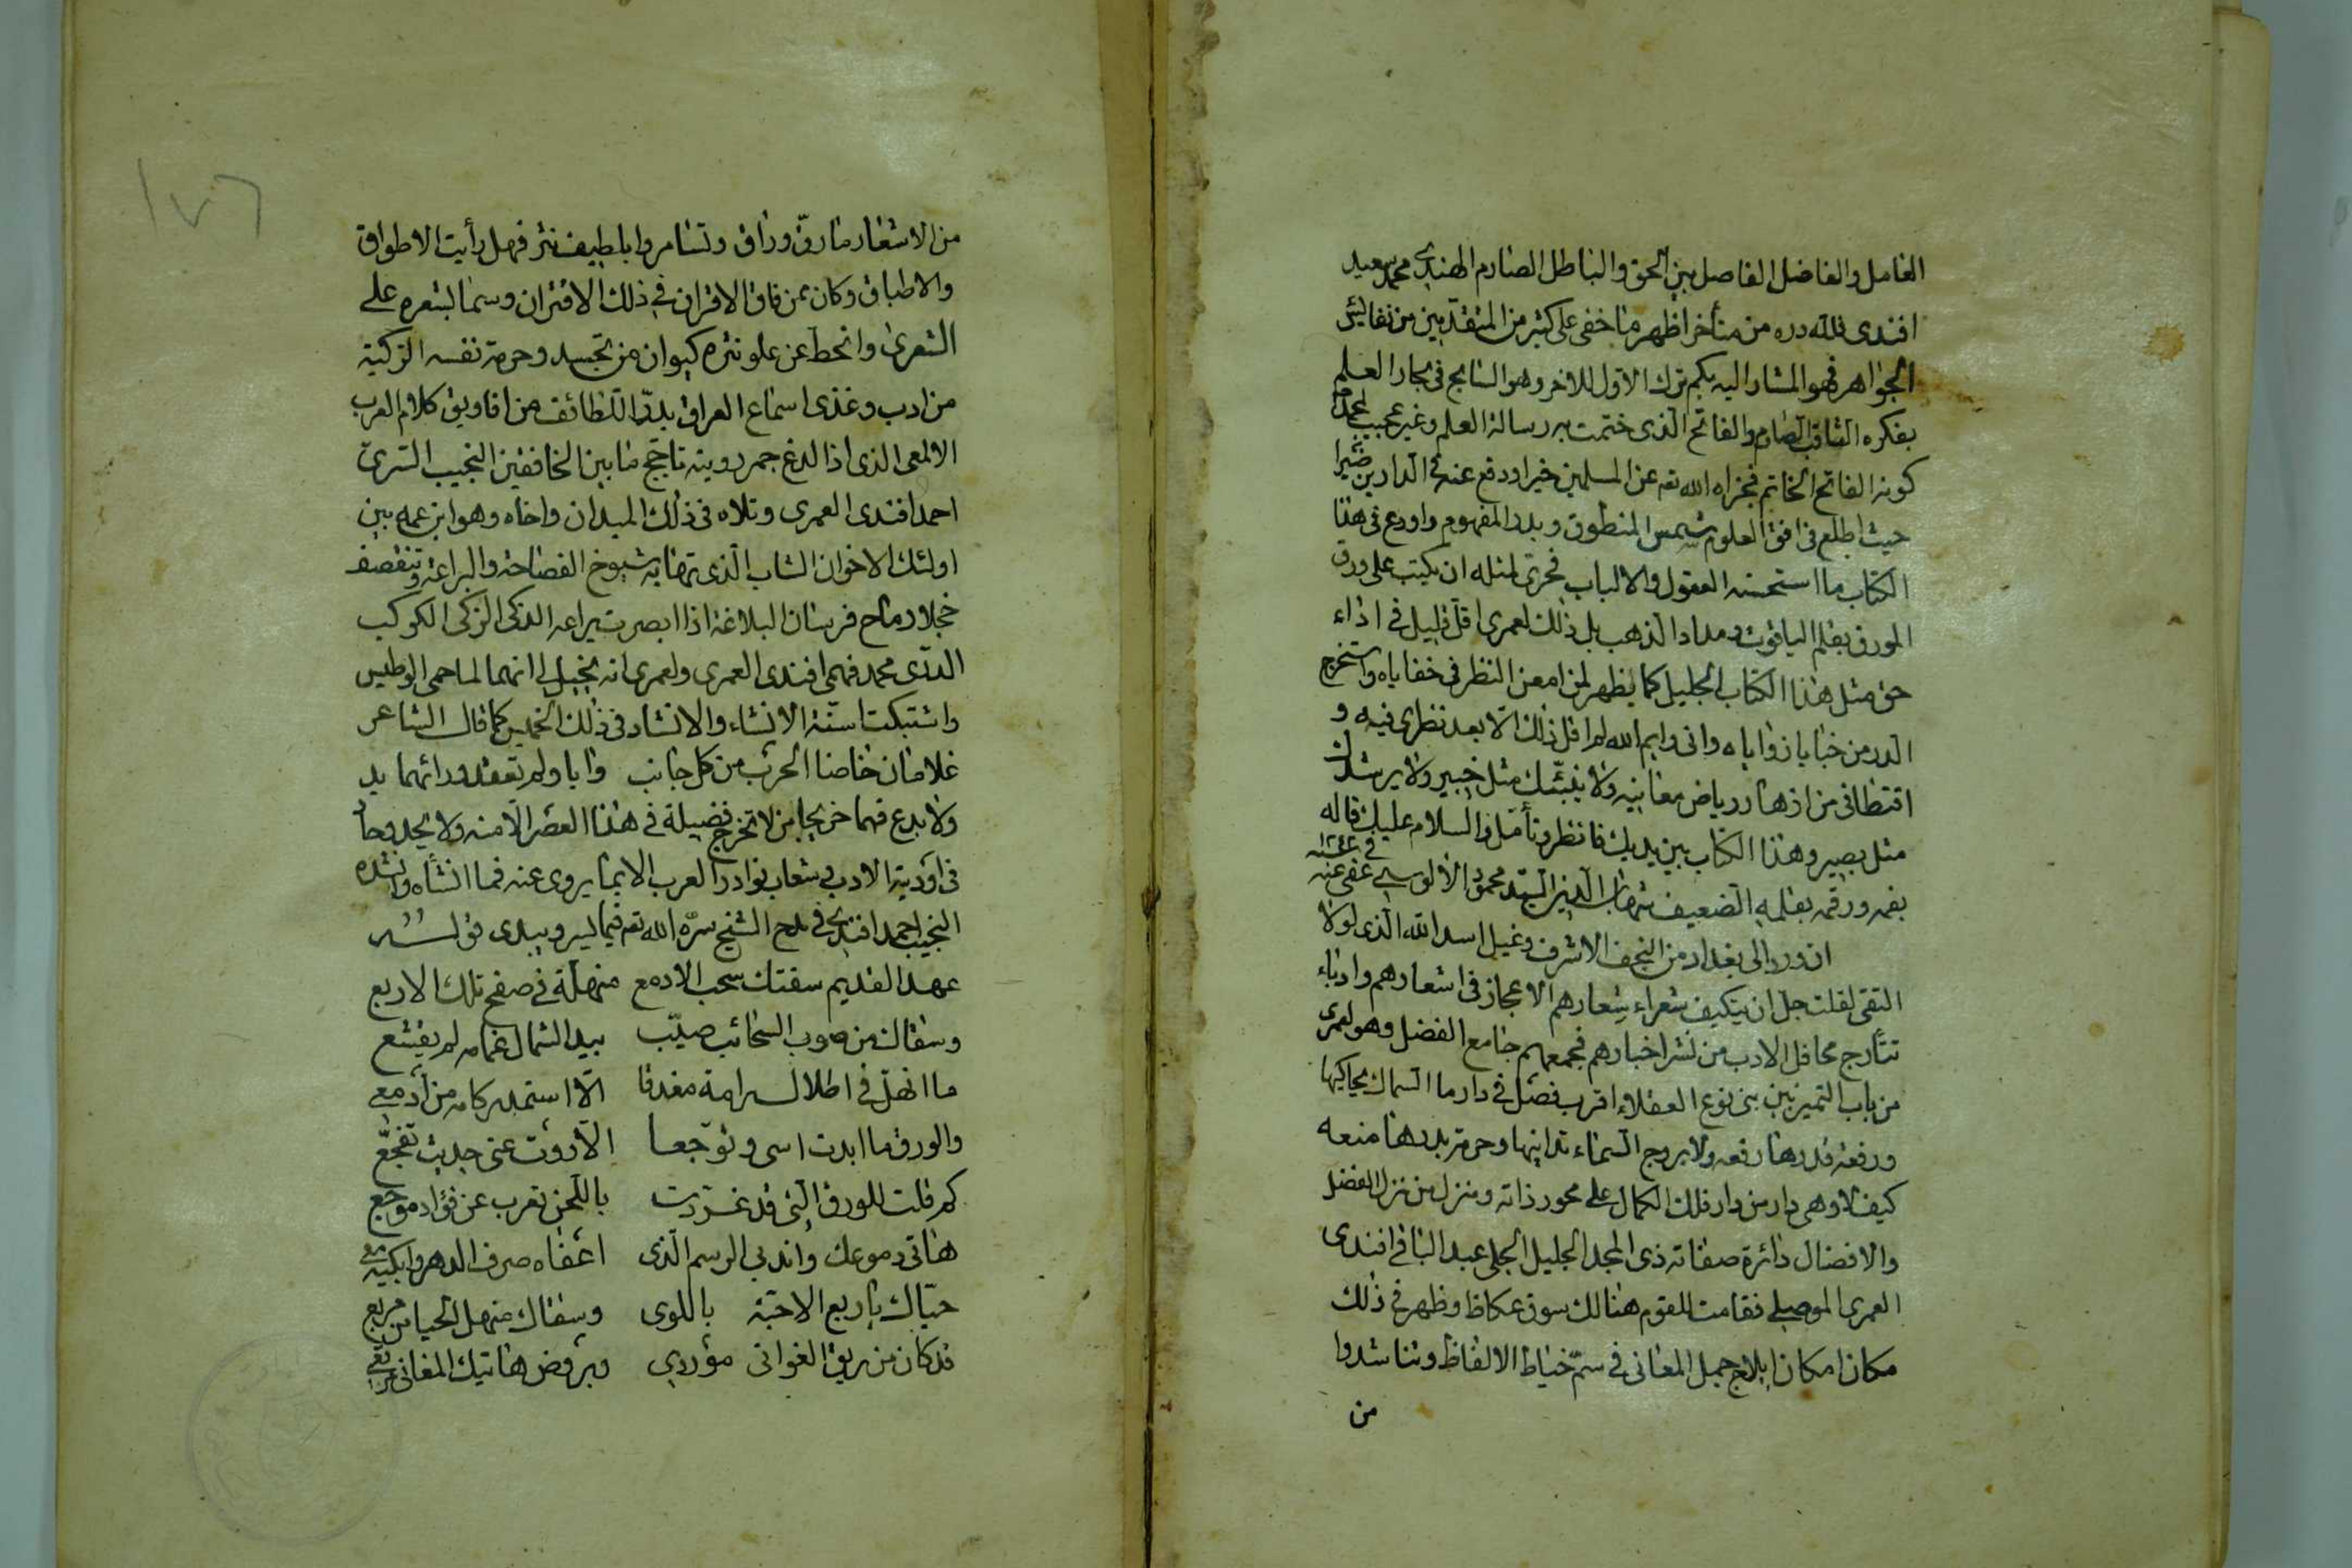 العامل والفاضل الفاصل بين الحق والباطل الصارم الهندي محمد سعيد
افندى فلله دره من متأخر اظهر ما خفى على كثير من المتقدمين من نفائس
الجواهر فهو المشار اليه بكم ترك الاول للاخر وهو السابح فى بحار العلم
بفكره الثاقب الصارم والفاتح الذى ختمت به رسالة العلم وغير عجيب
كونه الفاتح الخاتم فجزاه الله تعه عن المسلمين خيرا ودفع عنه فى الدارين ضيرا
حيث اطلع فى افق العلوم شمس المنطوق وبدر المفهوم واودع فى هذا
الكتاب ما استحسنه العقول والالباب فحرى لمثله ان يكتب على ورق
المورق بقلم الياقوت ومداد الذهب بل ذلك لعمرى اقل قليل فى اداء
حق مثل هذا الكتاب الجليل كما يظهر لمن امعن النظر فى خفاياه واستخرج
الدر من خبايا زواياه وانى وايم الله لم اقل ذلك الا بعد نظرى فيه و
اقتطافى من ازهار رياض معانيه ولا ينبئك مثل خبير ولا يرشدك
مثل بصير وهذا الكتاب بين يديك فانظر وتأمل والسلام عليك قاله
بفمه ورقمه بقلمه الضعيف شهاب الدين السيد محمود الالوسي عفى عنه
فى ١٢٤٤ سنه
ان ورد الى بغداد من النجف الاشرف وغيل اسد الله الذى لولا
التقى لقلت جل ان يتكيف شعراء شعارهم الاعجاز فى اشعارهم وادباء
تتأرج محافل الادب من نشر اخبارهم فجمعهم جامع الفضل وهو لعمرى
من باب التميز بين بنى نوع العقلاء اقرب فصل فى دار ما السماك يحاكيها
ورفعة قدرها رفعه ولا بروج السماء تدانيها وحرمة بدرها منعه
كيف لا وهى دار من دار فلك الكمال على محور ذاته ومنزل من نزل الفضل
والافضال دائرة صفاته ذى المجد الجليل الجلى عبد الباقى افندى
العمرى الموصلي فقامت للقوم هنالك سوق عكاظ وظهر فى ذلك
مكان امكان ايلاج جمل المعانى فى سم خياط الالفاظ وتناشدوا
من
١٧٦
من الاشعار ما رق وراق وتسامروا بلطيف نثر فهل رأيت الاطواق
والاطباق وكان ممن فاق الاقران فى ذلك الاقتران وسما بشعره على
الشعرى وانحط عن علو نثره كيوان من تجسد وحرمة نفسه الزكية
من ادب وغذى اسماع العراق بدر اللطائف من افاويق كلام العرب
الالمعى الذى اذا لدغ جمر رويته تأجج ما بين الخافقين النجيب السرى
احمد افندى العمرى وتلاه فى ذلك الميدان واخاه وهو ابن عمه بين
اولئك الاخوان الشاب الذى تهابه شيوخ الفصاحة والبراعة وتنقصف
خجلا رماح فرسان البلاغة اذا ابصرت يراعه الذكى الزكى الكوكب
الدرى محمد فهمى افندى العمرى ولعمرى انه يخيل لى انهما لما حمى الوطيس
واشتبكت اسنة الانشاء والانشاد فى ذلك الخميس كما قال الشاعر
غلامان خاضا الحرب من كل جانب وابا ولم تعقد ورائهما يد
ولا بدع فهما خريجا من لا تخرج فضيلة فى هذا العصر الا منه ولا يحدو حاد
فى اودية الادب وشعاب نوادر العرب الا بما يروى عنه فمما انشأه وانشده
النجيب احمد افندى فى مدح الشيخ سره الله تعه فيما يسر ويبدى قوله
عهد القديم سقتك سحب الادمع منهلة فى صفح تلك الاربع
وسقاك من صوب السحائب صيب بيد الشمال غمامه لم يقشع
ما انهل فى اطلال رامة مغدقا الا استمد ركامه من ادمعى
والورق ما ابدت اسى وتوجعا الا روت عنى حديث تفجع
كم قلت للورق التى قد غردت باللحن تعرب عن فؤاد موجع
هاتى دموعك واندبى الرسم الذى اعفاه صرف الدهر وابكيه معى
حياك يا ربع الاحبة باللوى وسقاك منهل الحيا من مربع
قد كان من ريق الغوانى موردي وبروض هاتيك المغانى مرتعى